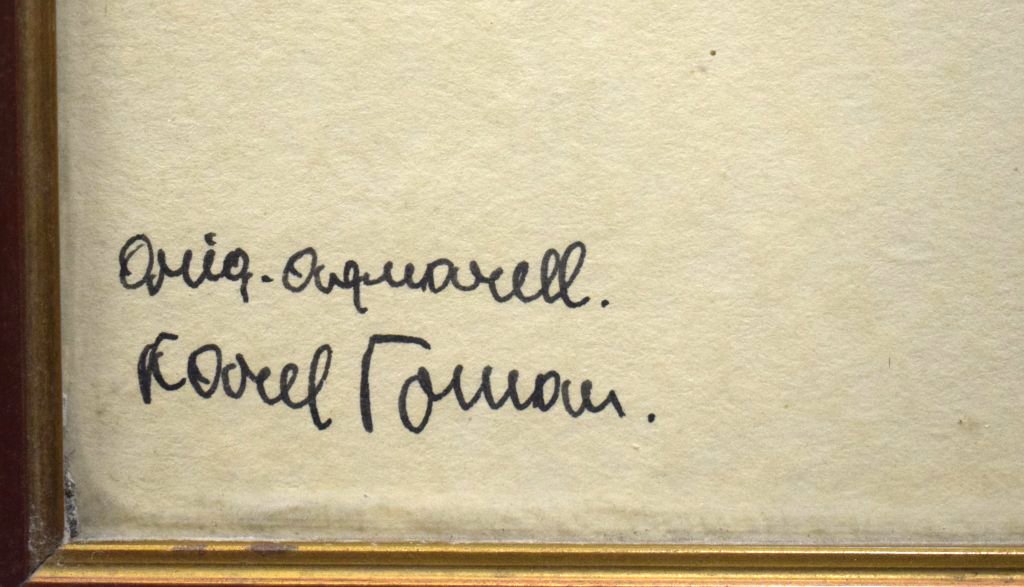 Orig. aquarell.
Karel Toman.